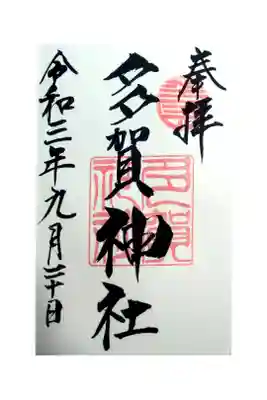 奉拝
多賀神社
令和三年九月二十日